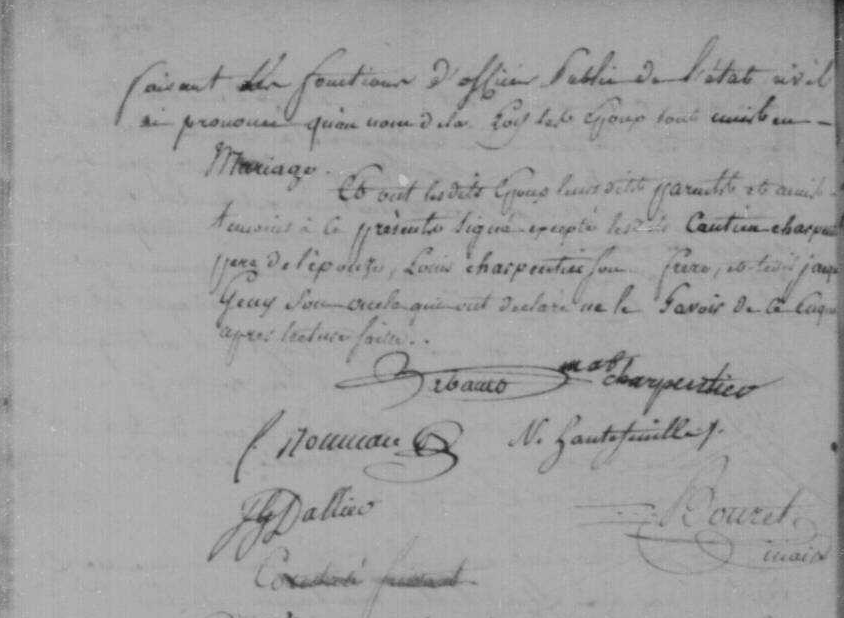 faisant les fonctions d'officier Public de l'état civil
ai prononcé qu'au nom de la Loy lesd. Epoux sont unis en
Mariage.
Et ont lesdits Epoux leurs dits parents et amis
temoins à ce présents signé excepté lesd. Cantien charpen
pere de l'épouze, Louis charpentier son frere, et led. jacq
Geny son oncle qui ont declaré ne le savoir de ce
apres lecture faite.
charpentier
N. hautefeuille
JG Dallier
Bouret
maire